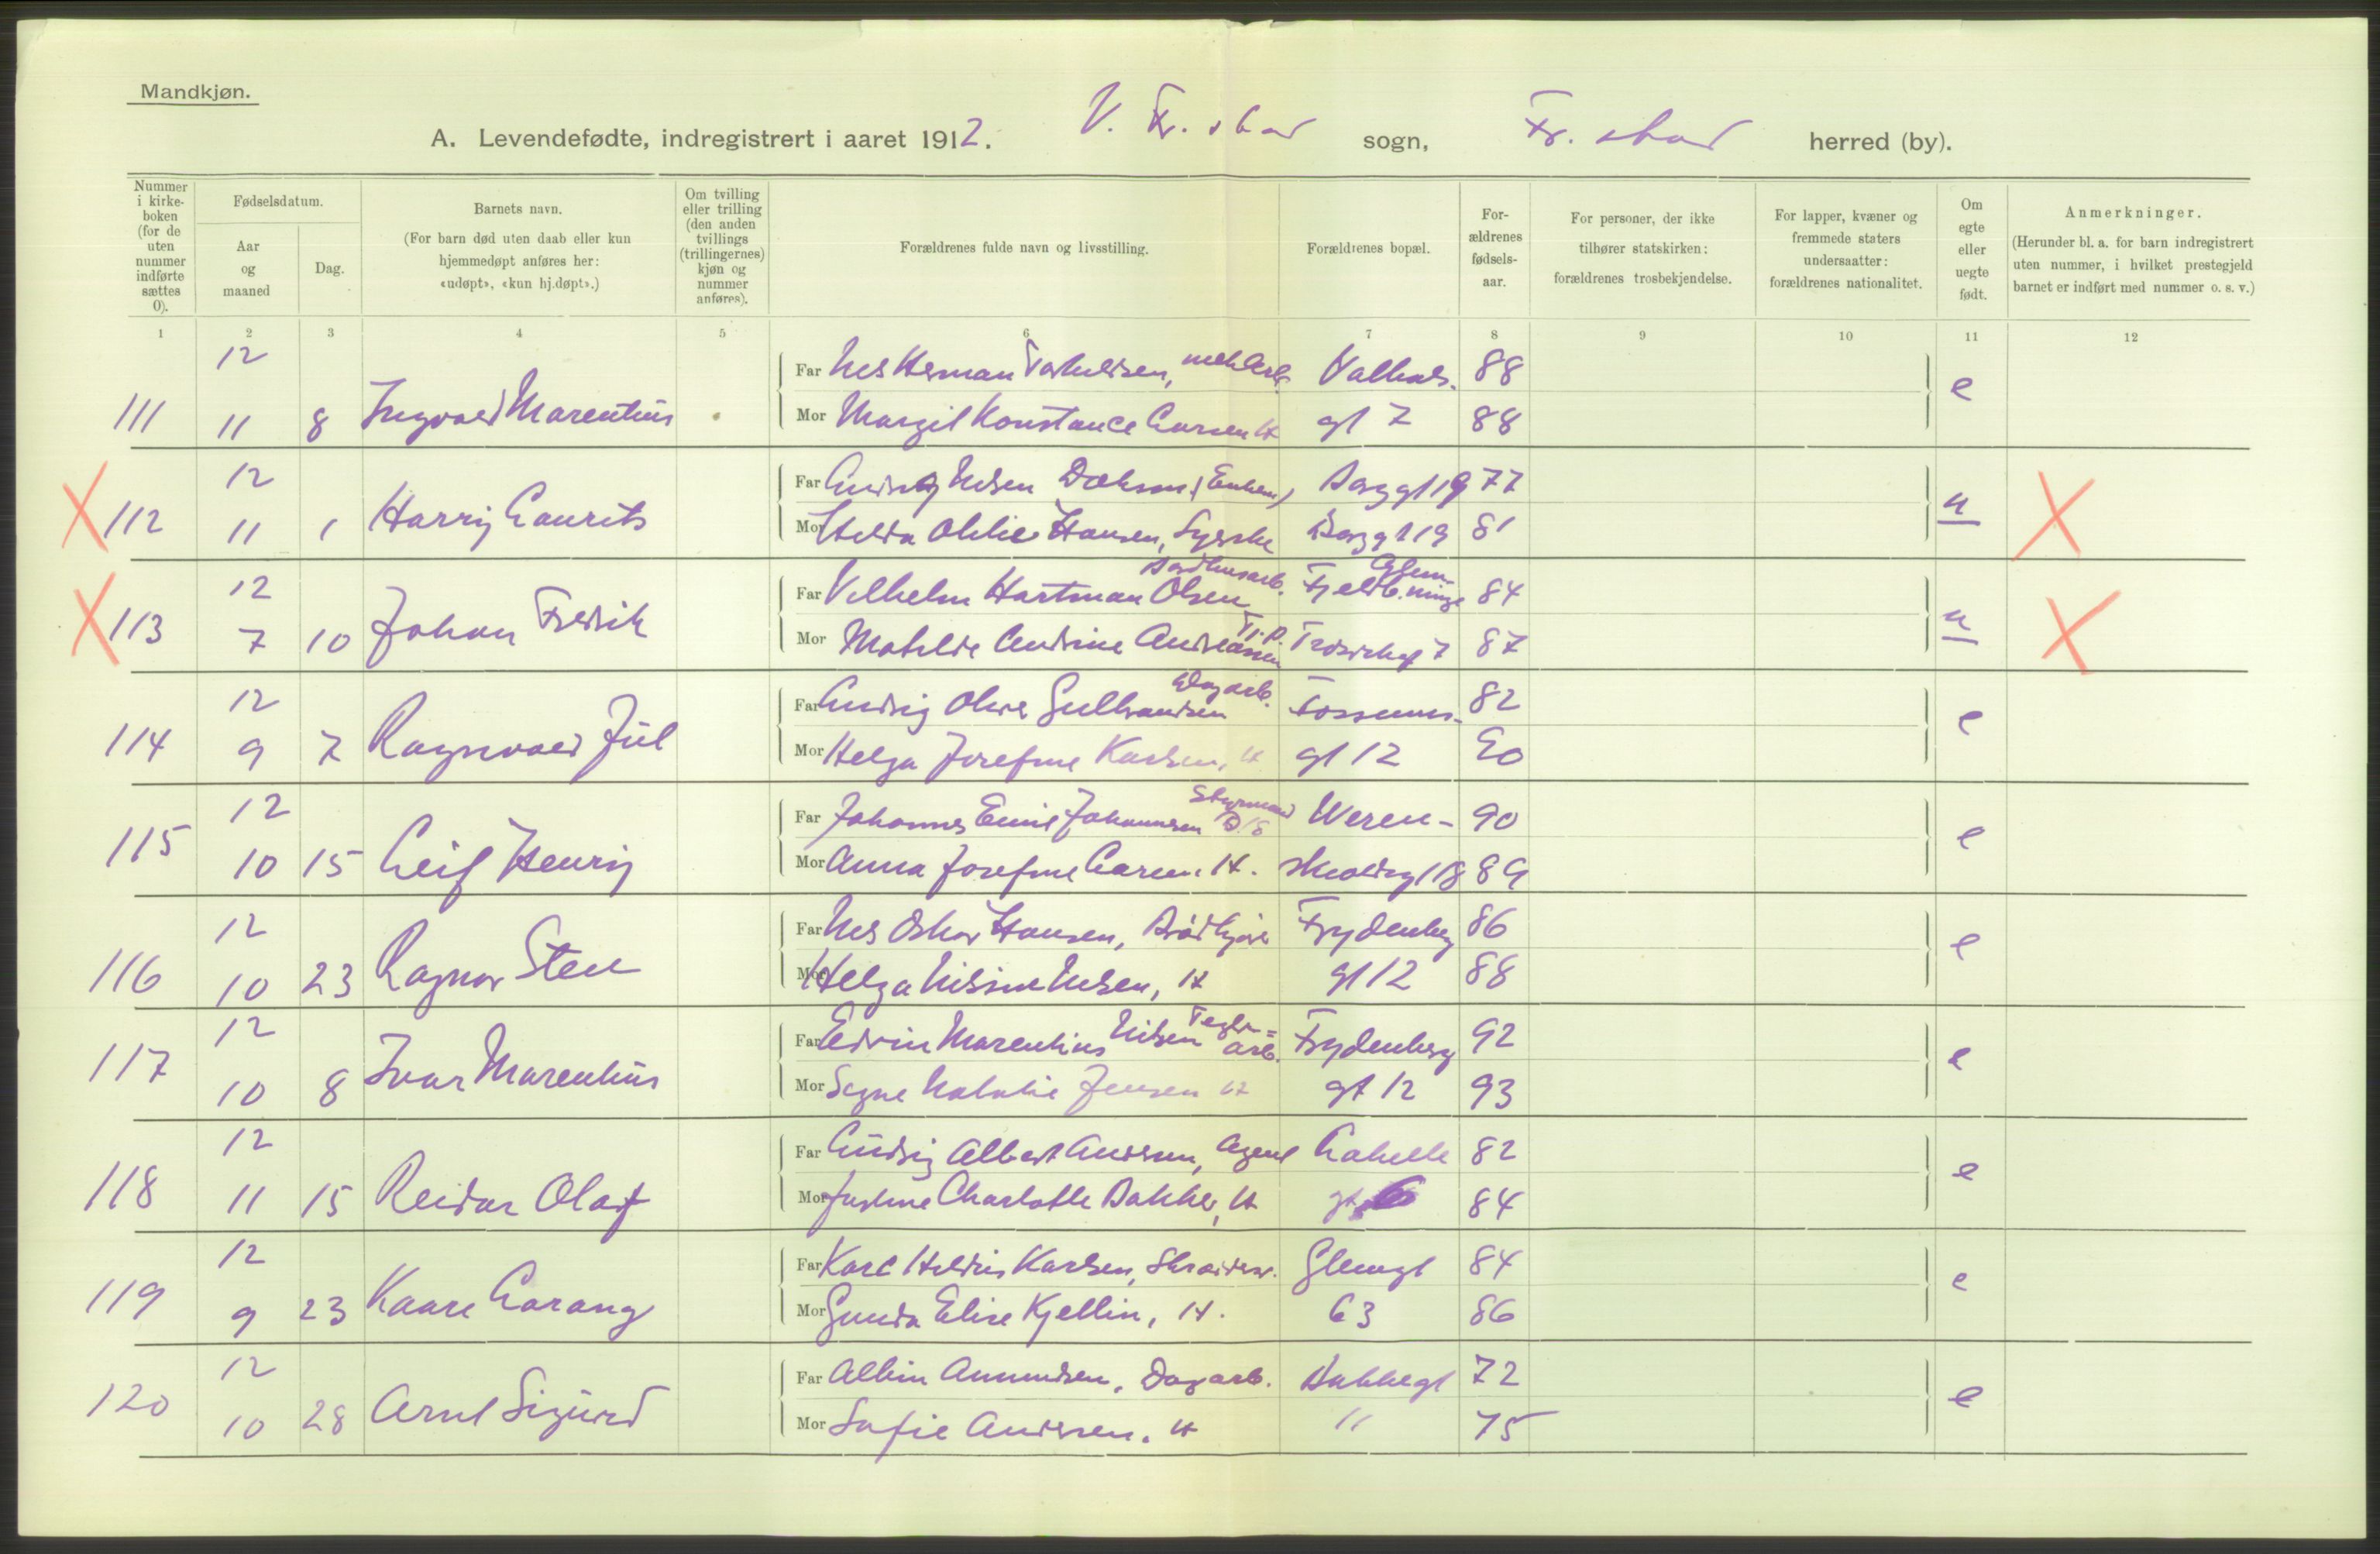 Mandkjøn.
A. Levendefødte, indregistrert i aaret 1912. V. Fr.stad sogn, Fr.stad herred (by).
Nummer i kirke-boken (for de uten nummer indførte sættes 0).
Fødselsdatum.
Aar og maaned
Dag.
Barnets navn.
(For barn død uten daab eller kun hjemmedøpt anføres her: «udøpt», «kun hj.døpt».)
Om tvilling eller trilling (den anden tvillings (trillingernes) kjøn og nummer anføres).
Forældrenes fulde navn og livsstilling.
Forældrenes bopæl.
For-ældrenes fødsels-aar.
For personer, der ikke tilhører statskirken: forældrenes trosbekjendelse.
For lapper, kvæner og fremmede staters undersaatter: forældrenes nationalitet.
Om egte eller uegte født.
Anmerkninger.
(Herunder bl. a. for barn indregistrert uten nummer, i hvilket prestegjeld barnet er indført med nummer o. s. v.)
1 2 3 4 5 6 7 8 9 10 11 12
12 Far Nils Herman 88
111 11 8 Ingvald Marentius Mor Margit Konstance Larsen H gt 7 88 e
12 Far Ludvig Nilsen (Enkem) Berggt 19 77
112 11 1 Harry Laurits Mor Hilda Othilie Hansen, Syerske Berggt 19 81 u
12 Far Vilhelm Hartman Olsen 84
113 7 10 Johan Fredrik Mor Matilde Andrine Andreassen 87 u
12 Far Ludvig Oluf Gulbrandsen Dagarb. Fossums- 82
114 9 7 Ragnvald Jul Mor Helga Josefine Karlsen, H gt 12 90 e
12 Far Johannes Emil Johannesen Styrmand D/S Weren- 90
115 10 15 Leif Henry Mor Anna Josefine Larsen H. skioldsgt 18 89 e
12 Far Nils Oskar Hansen, Brødkjører Frydenberg 86
116 10 23 Ragnar Sten Mor Helga Nilsine Nilsen, H gt 12 88 e
12 Far Edvin Marentius Nilsen Teglv= arb. Frydenberg 92
117 10 8 Ivar Marentius Mor Signe Natalie Jensen H gt 12 93 e
12 Far Ludvig Albert Andersen, Agent Lahelle 82
118 11 15 Reidar Olaf Mor Justine Charlotte Bakke, H gt 6 84 e
12 Far Karl Hildris Karlsen, Glemgt 84
119 9 23 Kaare Larang Mor Gunda Elise Kjellin, H. 63 86 e
12 Far Albin Amundsen, Dagarb. Bakkegt 72
120 10 28 Arnt Sigurd Mor Sofie Andersen. H " 75 e